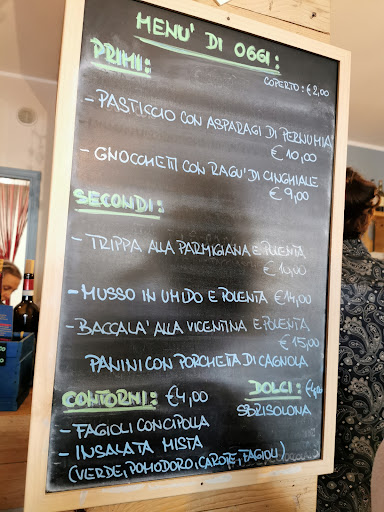 MENU' DI OGGI:
PRIMI:
COPERTO: €2,00
- PASTICCIO CON ASPARAGI DI PERNUMIA
€ 10,00
- GNOCCHETTI CON RAGU' DI CINGHIALE
€ 9,00
SECONDI:
- TRIPPA ALLA PARMIGIANA E POLENTA
€ 10,00
- MUSSO IN UMIDO E POLENTA €14,00
- BACCALA' ALLA VICENTINA E POLENTA
€ 15,00
PANINI CON PORCHETTA DI CAGNOLA
CONTORNI: €4,00
DOLCI: €4,00
SBRISOLONA
- FAGIOLI CON CIPOLLA
- INSALATA MISTA
(VERDE, POMODORO, CAROTE, FAGIOLI)